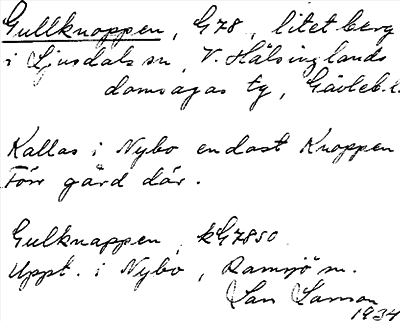 Gullknoppen, G78, litet berg
i Ljusdals sn, V. Hälsinglands
domsagas tg, Gävleb.l.
Kallas i Nybo endast Knoppen
Förr gård där.
Gulknappen, kG7850
Uppt. i Nybo, Ramsjö sn.
Larson
1934